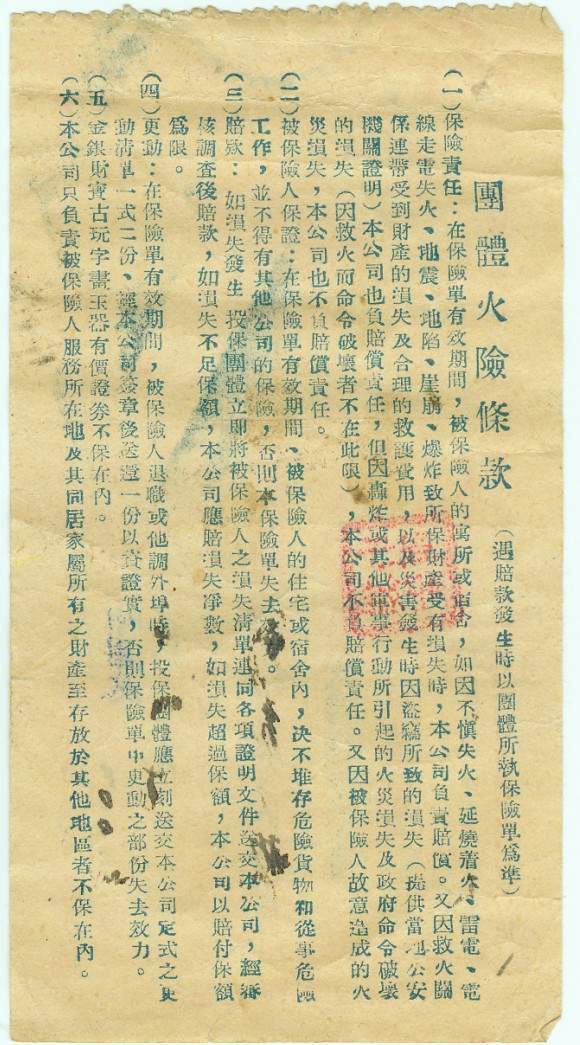 團體火險條款
(遇賠款發生時以團體所執保險單爲準)
(一)保險責任:在保險單有效期間,被保險人的寓所或宿舍,如因不愼失火、延燒着火、雷電、電
線走電失火、地震、地陷、崖崩、爆炸致所保財產受有損失時,本公司負責賠償。又因救火關
係連帶受到財產的損失及合理的救護費用,以及災害發生時因盜竊所致的損失(提供當地公安
機關證明)本公司也負賠償責任,但因轟炸或其他軍事行動所引起的火災損失及政府命令破壞
的損失(因救火而命令破壞者不在此限),本公司不負賠償責任。又因被保險人故意造成的火
災損失,本公司也不負賠償責任。
(二)被保險人保證:在保險單有效期間、被保險人的住宅或宿舍內,決不堆存危險貨物和從事危險
工作,並不得有其他公司的保險,否則本保險單失去
(三)賠欵:如損失發生 投保團體立即將被保險人之損失清單連同各項證明文件送交本公司,經審
核調查後賠款,如損失不足保額,本公司應賠損失淨數,如損失超過保額,本公司以賠付保額
爲限。
(四)更動:在保險單有效期間,被保險人退職或他調外埠時,投保團體應立刻送交本公司定式之更
動清單一式二份、經本公司簽章後送還一份以資證實,否則保險單中更動之部份失去效力。
(五)金銀財寶古玩字畫玉器有價證券不保在內。
(六)本公司只負責被保險人服務所在地及其同居家屬所有之財產至存放於其他地區者不保在內。